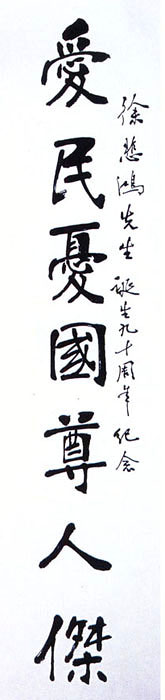 徐悲鴻先生誕生九十周年紀念
愛民憂國尊人傑